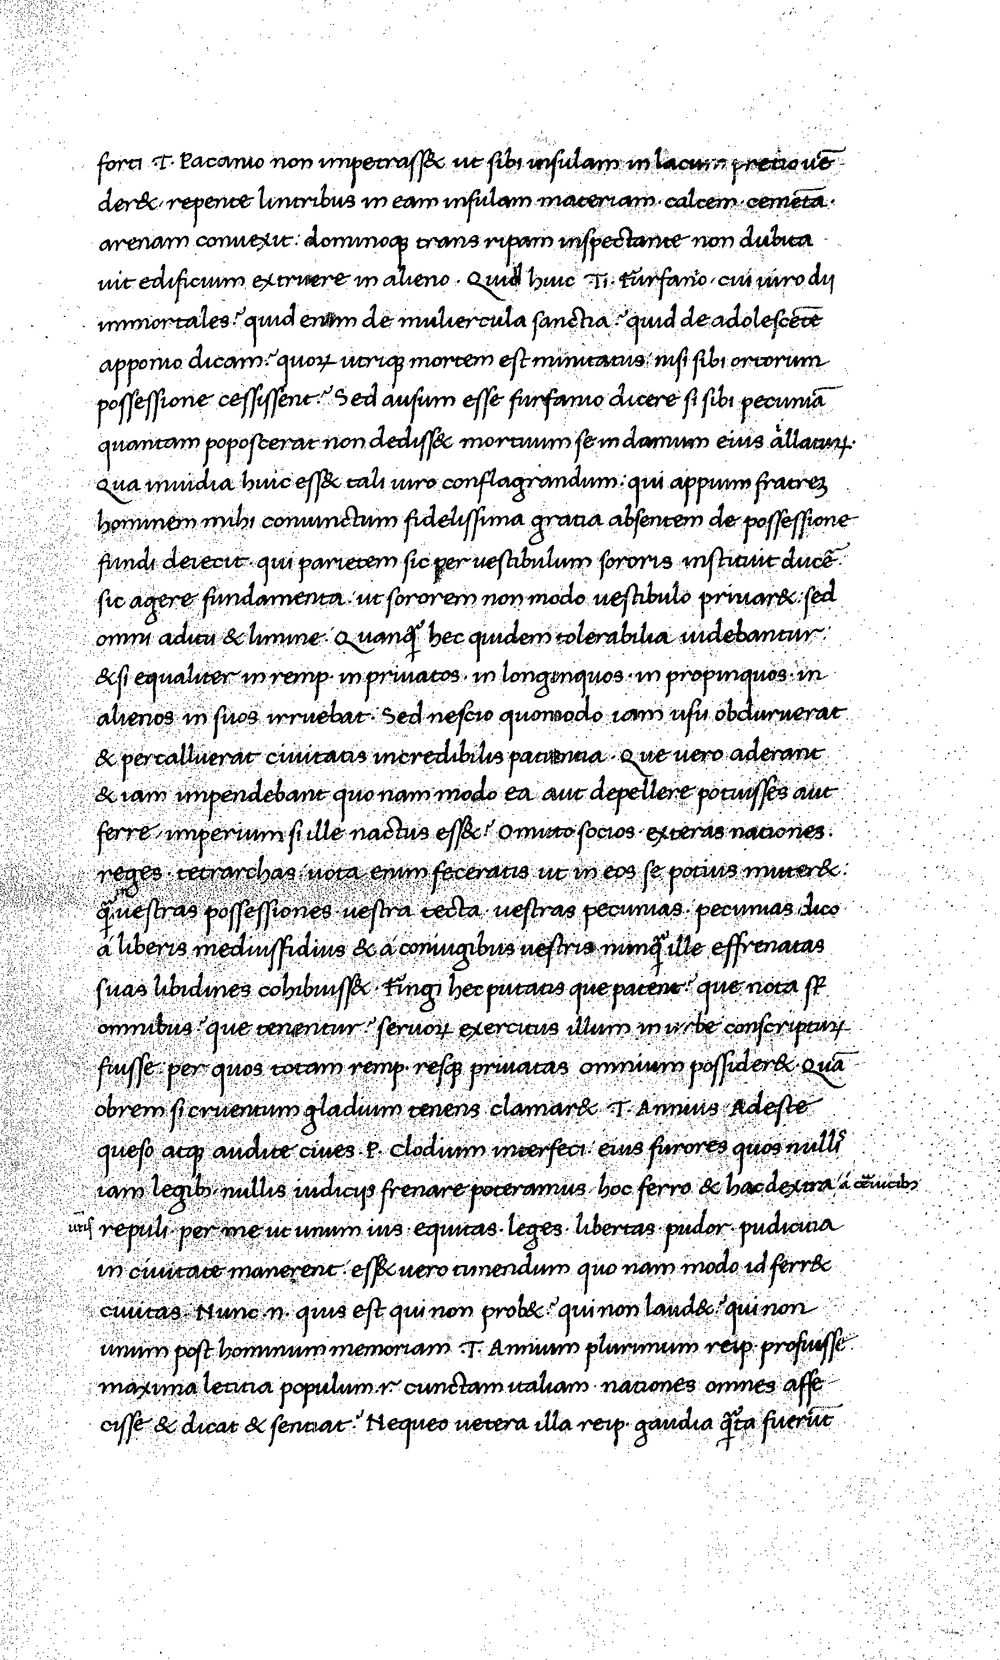 forti ·T· Pacanio non impetrass& ut sibi insulam in lacum pretio uē
der& · repente lintribus in eam insulam materiam · calcem · cemēta ·
arenam conuexit · dominoqꝫ trans ripam inspectante non dubita
uit edificium extruere in alieno · Quid huic ·Ti· Furfano · cui uiro dij
immortales? quid enim de muliercula sanctia? quid de adolescēte
apponio dicam? quoꝝ utriqꝫ mortem est minitatus · nisi sibi ortorum
possessione cessissent? Sed ausum esse furfanio dicere si sibi pecuniā
quantam poposcerat non dediss& mortuum se in domum eius allatuꝝ·
Qua inuidia huic ess& tali uiro conflagrandum · qui appium fratreꝫ
hominem mihi coniunctum fidelissima gratia absentem de possessione
fundi deiecit · qui parietem sic per uestibulum sororis instituit ducē
sic agere fundamenta · ut sororem non modo uestibulo priuar& · sed
omni aditu & limine · Quanꝗ̄ hec quidem tolerabilia uidebantur ·
&si equaliter in remp · in priuatos · in longinquos · in propinquos · in
alienos in suos irruebat · Sed nescio quomodo iam usu obduruerat
& percalluerat ciuitatis incredibilis patientia · Que uero aderant
& iam impendebant quo nam modo ea aut depellere potuisses aut
ferre · imperium si ille nactus ess&? Omitto socios · exteras nationes ·
reges · tetrarchas · uota enim feceratis ut in eos se potius mitter& ·
ꝗ̄ in uestras possessiones · uestra tecta · uestras pecunias · pecunias dico
á liberis mediusfidius & á coniugibus uestris nunꝗ̄ ille effrenatas
suas libidines cohibuiss& · Fingi hec putatis que patent? que nota sr̄
omnibus? que tenentur? seruoꝝ exercitus illum in urbe conscriptuꝝ
fuisse · per quos totam remp · resqꝫ priuatas omnium possider& · Quā
obrem si cruentum gladium tenens clamar& ·T· Annius Adeste
queso atqꝫ audite ciues ·P· Clodium interfeci · eius furores quos nullis
iam legibꝫ · nullis iudicijs frenare poteramus · hoc ferro & hac dextra á cēruicibꝫ
uris̄ repuli · per me ut unum ius equitas · leges · libertas · pudor · pudicitia
in ciuitate manerent · ess& uero timendum quo nam modo id ferr&
ciuitas · Nunc .n. quis est qui non prob&? qui non laud&? qui non
unum post hominum memoriam ·T· Annium plurimum reip · profuisse
maxima letitia populum .r. cunctam italiam · nationes omnes affe
cisse & dicat & sentiat? Nequeo uetera illa reip · gaudia ꝗ̄ta fuerūt